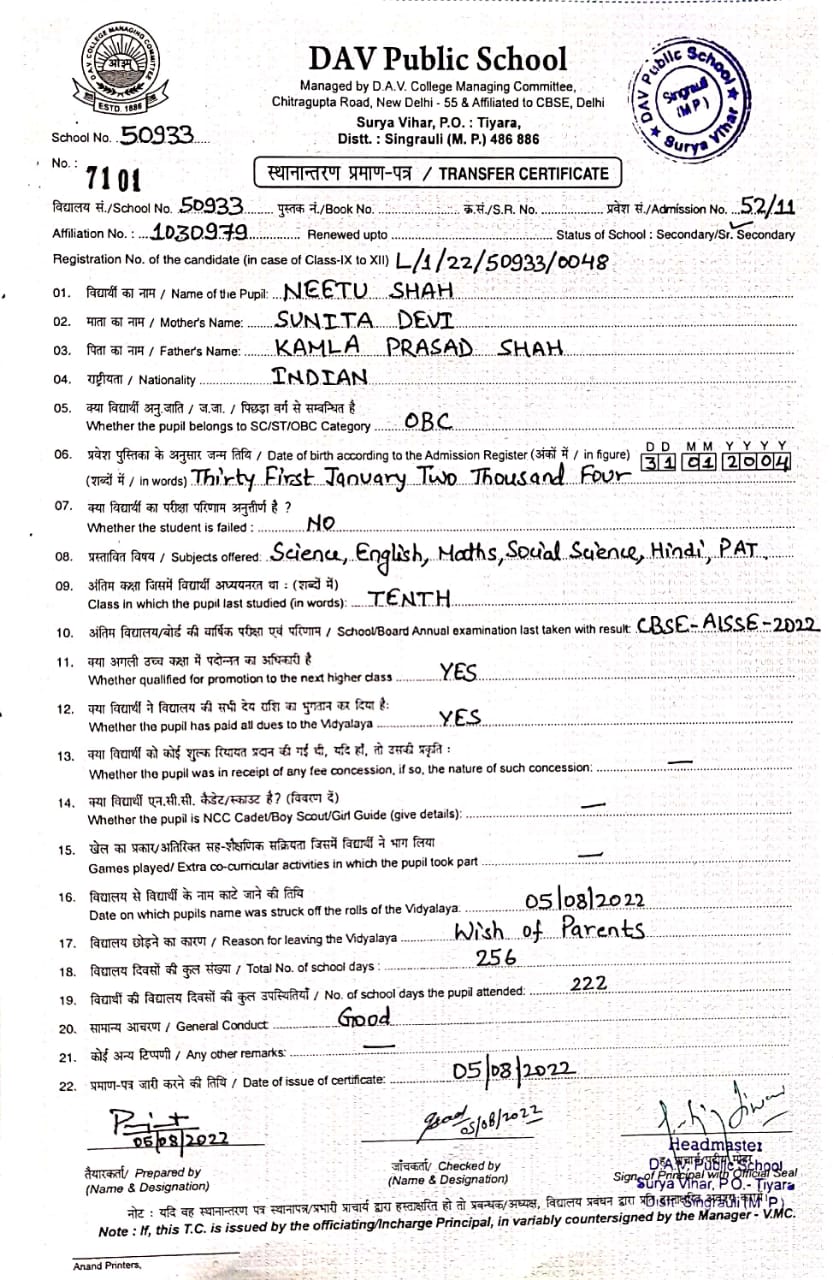 D.A.V. COLLEGE MANAGING COMMITTEE
ओ३म्
ESTD. 1886
DAV Public School
Managed by D.A.V. College Managing Committee,
Chitragupta Road, New Delhi - 55 & Affiliated to CBSE, Delhi
Surya Vihar, P.O. : Tiyara,
Distt. : Singrauli (M. P.) 486 886
DAV Public School
Singrauli
(M P)
Surya Vihar
School No. 50933
No. : 7101
स्थानान्तरण प्रमाण-पत्र / TRANSFER CERTIFICATE
विद्यालय सं./School No. 50933 पुस्तक नं./Book No. क्र.सं./S.R. No. प्रवेश सं./Admission No. 52/11
Affiliation No. : 1030979 Renewed upto Status of School : Secondary/Sr. Secondary
Registration No. of the candidate (in case of Class-IX to XII) L/1/22/50933/0048
01. विद्यार्थी का नाम / Name of the Pupil: NEETU SHAH
02. माता का नाम / Mother's Name: SUNITA DEVI
03. पिता का नाम / Father's Name: KAMLA PRASAD SHAH
04. राष्ट्रीयता / Nationality INDIAN
05. क्या विद्यार्थी अनु.जाति / ज.जा. / पिछड़ा वर्ग से सम्बन्धित है
Whether the pupil belongs to SC/ST/OBC Category OBC
D D M M Y Y Y Y
06. प्रवेश पुस्तिका के अनुसार जन्म तिथि / Date of birth according to the Admission Register (अंकों में / in figure) 31 01 2004
(शब्दों में / in words) Thirty First January Two Thousand Four
07. क्या विद्यार्थी का परीक्षा परिणाम अनुत्तीर्ण है ?
Whether the student is failed : NO
08. प्रस्तावित विषय / Subjects offered: Science, English, Maths, Social Science, Hindi, PAT
09. अंतिम कक्षा जिसमें विद्यार्थी अध्ययनरत था : (शब्दों में)
Class in which the pupil last studied (in words): TENTH
10. अंतिम विद्यालय/बोर्ड की वार्षिक परीक्षा एवं परिणाम / School/Board Annual examination last taken with result: CBSE-AISSE-2022
11. क्या अगली उच्च कक्षा में पदोन्नत का अधिकारी है
Whether qualified for promotion to the next higher class YES
12. क्या विद्यार्थी ने विद्यालय की सभी देय राशि का भुगतान कर दिया है:
Whether the pupil has paid all dues to the Vidyalaya YES
13. क्या विद्यार्थी को कोई शुल्क रियायत प्रदान की गई थी, यदि हाँ, तो उसकी प्रकृति :
Whether the pupil was in receipt of any fee concession, if so, the nature of such concession: —
14. क्या विद्यार्थी एन.सी.सी. कैडेट/स्काउट है? (विवरण दें)
Whether the pupil is NCC Cadet/Boy Scout/Girl Guide (give details): —
15. खेल का प्रकार/अतिरिक्त सह-शैक्षणिक सक्रियता जिसमें विद्यार्थी ने भाग लिया
Games played/ Extra co-curricular activities in which the pupil took part —
16. विद्यालय से विद्यार्थी के नाम काटे जाने की तिथि
Date on which pupils name was struck off the rolls of the Vidyalaya. 05/08/2022
17. विद्यालय छोड़ने का कारण / Reason for leaving the Vidyalaya Wish of Parents
18. विद्यालय दिवसों की कुल संख्या / Total No. of school days : 256
19. विद्यार्थी की विद्यालय दिवसों की कुल उपस्थितियाँ / No. of school days the pupil attended: 222
20. सामान्य आचरण / General Conduct Good
21. कोई अन्य टिप्पणी / Any other remarks: —
22. प्रमाण-पत्र जारी करने की तिथि / Date of issue of certificate: 05/08/2022
05/08/2022 05/08/2022
Headmaster
D.A.V. Public School
Surya Vihar, P.O.- Tiyara
Distt- Singrauli (M P)
तैयारकर्ता/ Prepared by जाँचकर्ता/ Checked by Sign. of Principal with Official Seal
(Name & Designation) (Name & Designation)
नोट : यदि वह स्थानान्तरण पत्र स्थानापन्न/प्रभारी प्राचार्य द्वारा हस्ताक्षरित हो तो प्रबन्धक/अध्यक्ष, विद्यालय प्रबंधन द्वारा प्रति हस्ताक्षरित
Note : If, this T.C. is issued by the officiating/Incharge Principal, in variably countersigned by the Manager - V.MC.
Anand Printers,